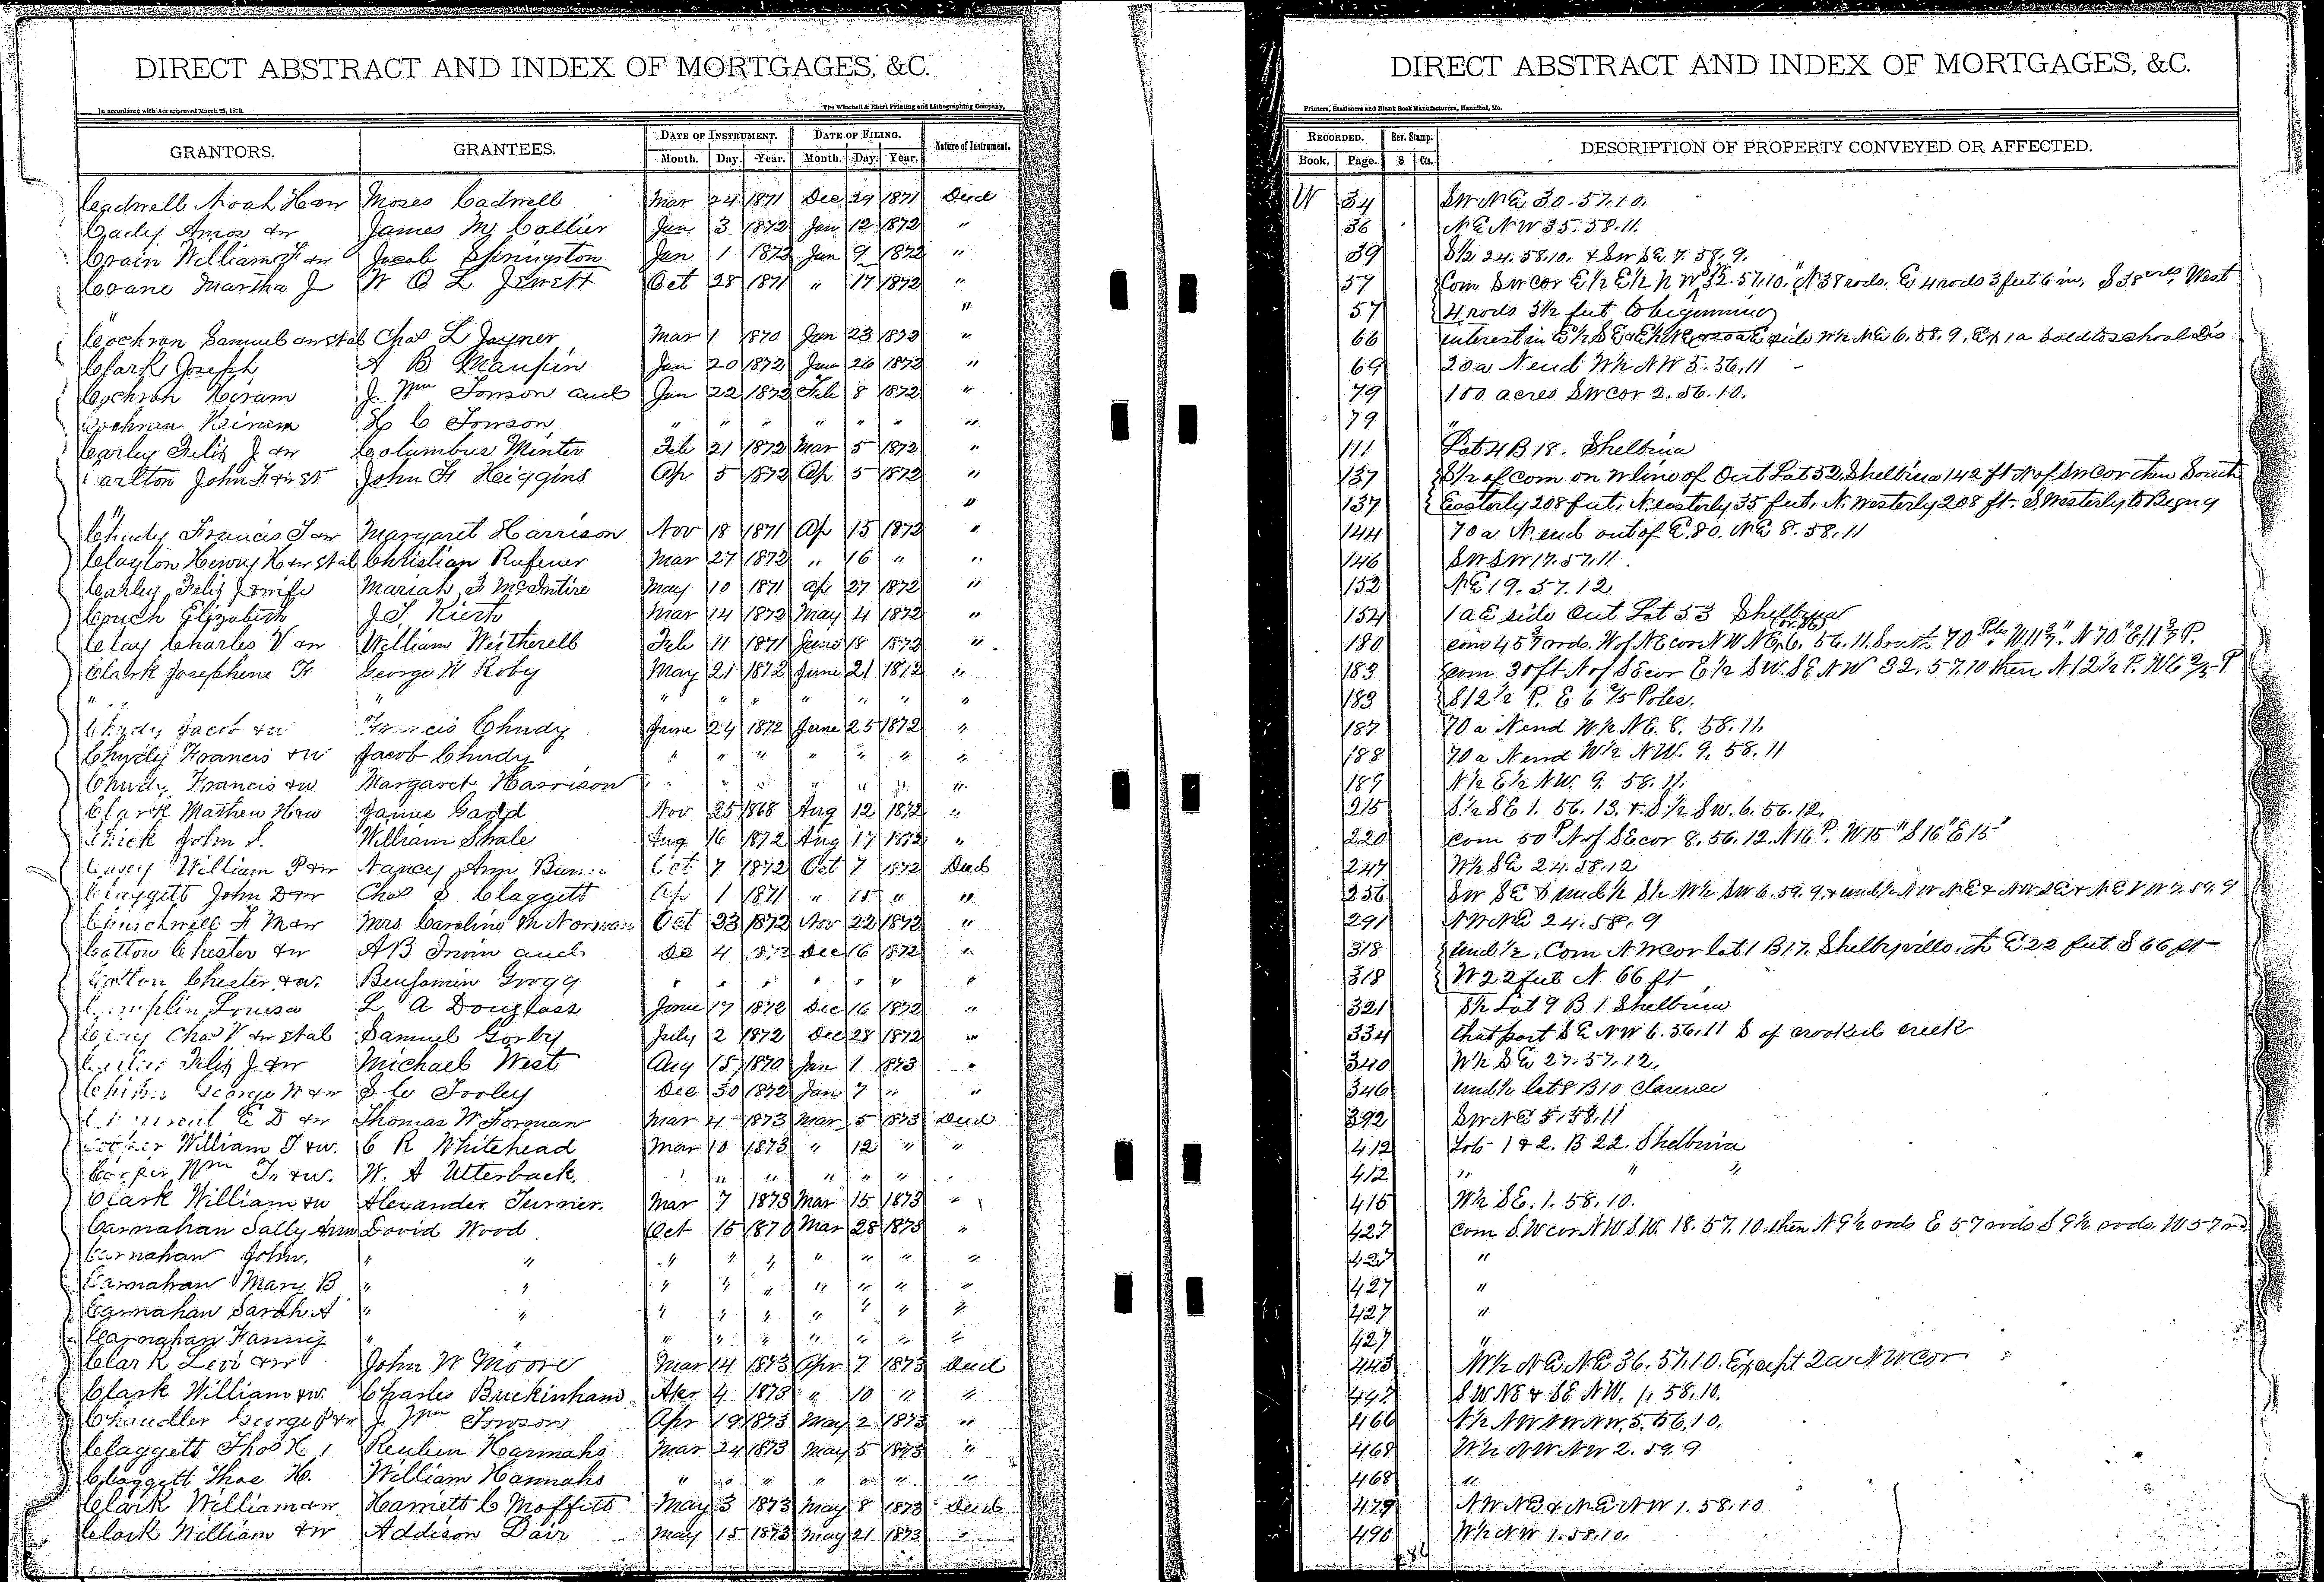 DIRECT ABSTRACT AND INDEX OF MORTGAGES, &C.
In accordance with Act approved March 25, 1873.
The Winchell & Ebert Printing and Lithographing Company,
GRANTORS. GRANTEES. DATE OF INSTRUMENT. DATE OF FILING. Nature of Instrument.
Month. Day. Year. Month. Day. Year.
Cadwell Noah H & w Moses Cadwell Mar 24 1871 Dec 29 1871 Deed
Cady Amos & w James M Collier Jan 3 1872 Jan 12 1872 "
Crain William F & w Jacob Springston Jan 1 1872 Jan 9 1872 "
Crane Martha J W O L Jewett Oct 28 1871 " 17 1872 "
" "
Cochran Samuel Chas L Joyner Mar 1 1870 Jan 23 1872 "
Clark Joseph A B Maupin Jan 20 1872 Jan 26 1872 "
Cochran Hiram J. Wm Towson and Jan 22 1872 Feb 8 1872 "
Cochran Hiram C Towson " " " " " " "
Carley Felix J & w Columbus Minter Feb 21 1872 Mar 5 1872 "
Carlton John F John F Higgins Ap 5 1872 Ap 5 1872 "
" "
Chudy Francis J & w Margaret Harrison Nov 18 1871 Ap 15 1872 "
Clayton Henry H & w et al Christian Rufener Mar 27 1872 " 16 " "
Carley Felix J & wife Mariah F McIntire May 10 1871 Ap 27 1872 "
Couch Elizabeth Mar 14 1872 May 4 1872 "
Clay Charles V & w William Witherell Feb 11 1871 June 18 1872 "
Clark Josephene F George W Roby May 21 1872 June 21 1872 "
" " " " " " " " "
Chudy Jacob & w Francis Chudy June 24 1872 June 25 1872 "
Chudy Francis & w Jacob Chudy " " " " " " "
Chudy Francis & w Margaret Harrison " " " " " " "
Clark Mathew H & w James Gadd Nov 25 1868 Aug 12 1872 "
Chick John S. William Shale Aug 16 1872 Aug 17 1872 "
William P & w Nancy Ann Oct 7 1872 Oct 7 1872 Deed
Claggett John D & w Chas S Claggett Ap 1 1871 " 15 " "
Churchwell F M & w Mrs Caroline M Norman Oct 23 1872 Nov 22 1872 "
Cotton Chester & w A B Irwin and De 4 1872 Dec 16 1872 "
Cotton Chester & w. Benjamin Grogg " " " " " " "
Louisa L A Douglass June 17 1872 Dec 16 1872 "
Clay Chas V & w et al Samuel Gorby July 2 1872 Dec 28 1872 "
Felix J & w Michael West Aug 15 1870 Jan 1 1873 "
George W & w S C Tooley Dec 30 1872 Jan 7 " "
E D & w Thomas W Forman Mar 4 1873 Mar 5 1873 Deed
William T & w. C R Whitehead Mar 10 1873 " 12 " "
Cooper Wm T. & w. W. A Utterback. " " " " " " "
Clark William & w Alexander Turner. Mar 7 1873 Mar 15 1873 "
Carnahan Sally Ann David Wood Oct 15 1870 Mar 28 1873 "
Carnahan John. " " " " " " " " "
Carnahan Mary B " " " " " " " " "
Carnahan Sarah A " " " " " " " " "
Carnahan Fanny " " " " " " " " "
Clark Levi & w John W Moore Mar 14 1873 Apr 7 1873 Deed
Clark William & w. Charles Buckinham Apr 4 1873 " 10 " "
Chandler George P & w J. Wm Towson Apr 19 1873 May 2 1873 "
Claggett Thos H Reuben Hannahs Mar 24 1873 May 5 1873 "
Claggett Thos H. William Hannahs " " " " " " "
Clark William & w Harriett C Moffitt May 3 1873 May 8 1873 Deed
Clark William & w Addison Dair May 15 1873 May 21 1873 "
DIRECT ABSTRACT AND INDEX OF MORTGAGES, &C.
Printers, Stationers and Blank Book Manufacturers, Hannibal, Mo.
RECORDED. Rev. Stamp. DESCRIPTION OF PROPERTY CONVEYED OR AFFECTED.
Book. Page. $ Cts.
W 34 SW NE 30.57.10.
36 NE NW 35.58.11.
39 S½ 24.58.10. & SW SE 7.58.9.
57 Com SW cor E½ E½ N W 32.57.10. N 38 rods. E 4 rods 3 feet 6 in. S 38 West
57 4 rods 3½ feet to beginning
66 interest in E½ SE & side W½ NE 6.58.9. Ex 1a sold to school dis
69 20a N end W½ NW 5.56.11
79 100 acres SW cor 2.56.10.
79 "
111 Lot 4 B 18. Shelbina
137 S½ of Com on W line of Out Lot 52 Shelbina 142 ft N of SW cor then South
137 Easterly 208 feet, N. easterly 35 feet, N. Westerly 208 ft. S. Westerly to Begng
144 70a N. end out of E. 80. NE 8.58.11
146 SW SW 17.57.11.
152 NE 19.57.12
154 1a E side Out Lot 53 Shelbyna
180 com 45 rods. W of NE cor NW NE 6. 56.11. South 70 Poles N 70
183 com 30 ft N of SE cor E½ SW. SE NW 32.57.10 then N 12½ P. W 6 2/5 P
183 S 12½ P. E 6 2/5 Poles.
187 70a N end W½ NE. 8. 58.11.
188 70a N end W½ NW. 9. 58.11
189 N½ E½ NW. 9. 58.11.
215 S½ SE 1. 56.13. & S½ SW. 6. 56.12.
220 com 50 P N of SE cor 8.56.12. N 16 P. W 15 " S 16 " E 15 "
247 W½ SE 24.58.12
256 SW SE & und ½ S½ W½ SW 6.59.9. & und ½ NW NE & NW SE & NE NW 7.59.9
291 NW NE 24.58.9
318 und ½. Com NW cor lot 1 B 17. Shelbyville. th E 22 feet S 66 ft
318 W 22 feet N 66 ft
321 S½ Lot 9 B 1 Shelbina
334 that part SE NW 6.56.11 S of crooked creek
340 W½ SE 27.57.12.
346 und ½ lot 8 B 10 Clarence
392 SW NE 5.58.11
412 Lots 1 & 2. B 22. Shelbina
412 " " "
416 W½ SE. 1. 58.10.
427 com S.W cor NW SW. 18.57.10. then N 9½ rods E 57 rods S 9½ rods. W 57 rd
427 "
427 "
427 "
427 "
443 W½ NE NE 36.57.10. Except 2a NW cor
447 SW NE & SE NW. 1. 58.10.
466 N½ NW NW NW. 5.56.10.
468 W½ NW NW 2.59.9
468 "
479 NW NE & NE NW 1.58.10
490 W½ NW 1.58.10.